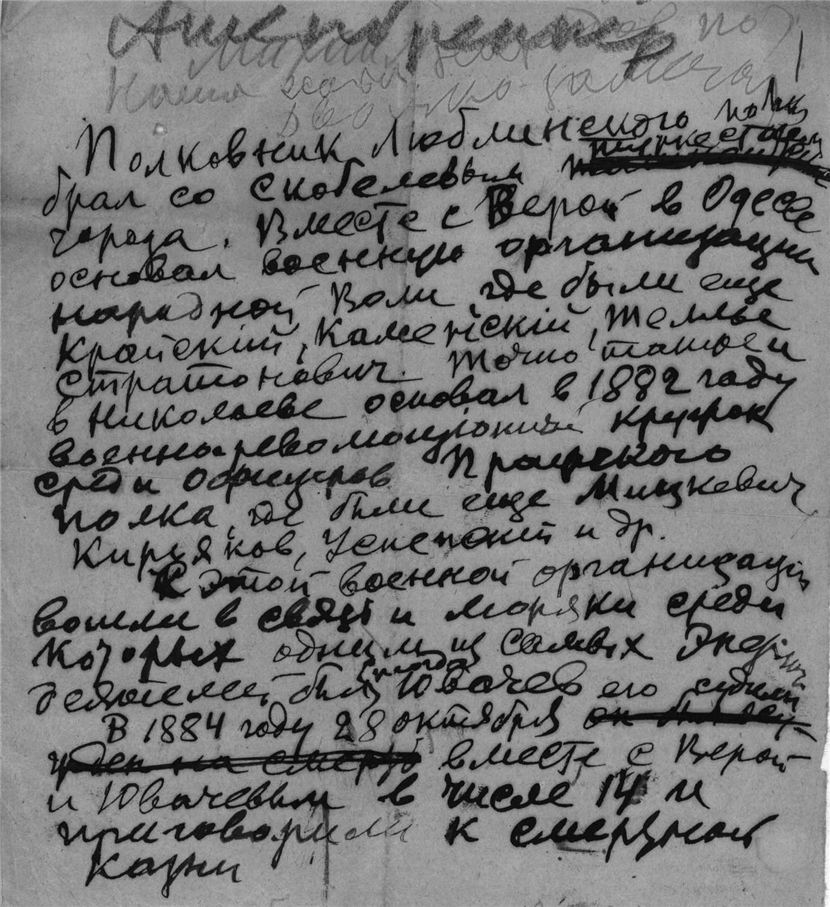 Ашенбреннер
Наша
Полковник Люблинского полка
брал со Скобелевым
города. Вместе с Верой в Одессе
основал военную организацию
народной Воли где были еще
Крайскій, Каменскій, Телье
Стратонович. Точно также и
в Николаеве основал в 1882 году
военно революціонный кружок
среди офицеров Прагского
полка, где были еще Мицкевич
Кирьяков, Успенскій и др.
К этой военной организаціи
вошли в связь и моряки среди
которых одним из самых
деятелей был Ювачев его судили
В 1884 году 28 октября он был осу-
жден на смерть вместе с Верой
и Ювачевым в числе 14 и
приговорили к смертной
казни